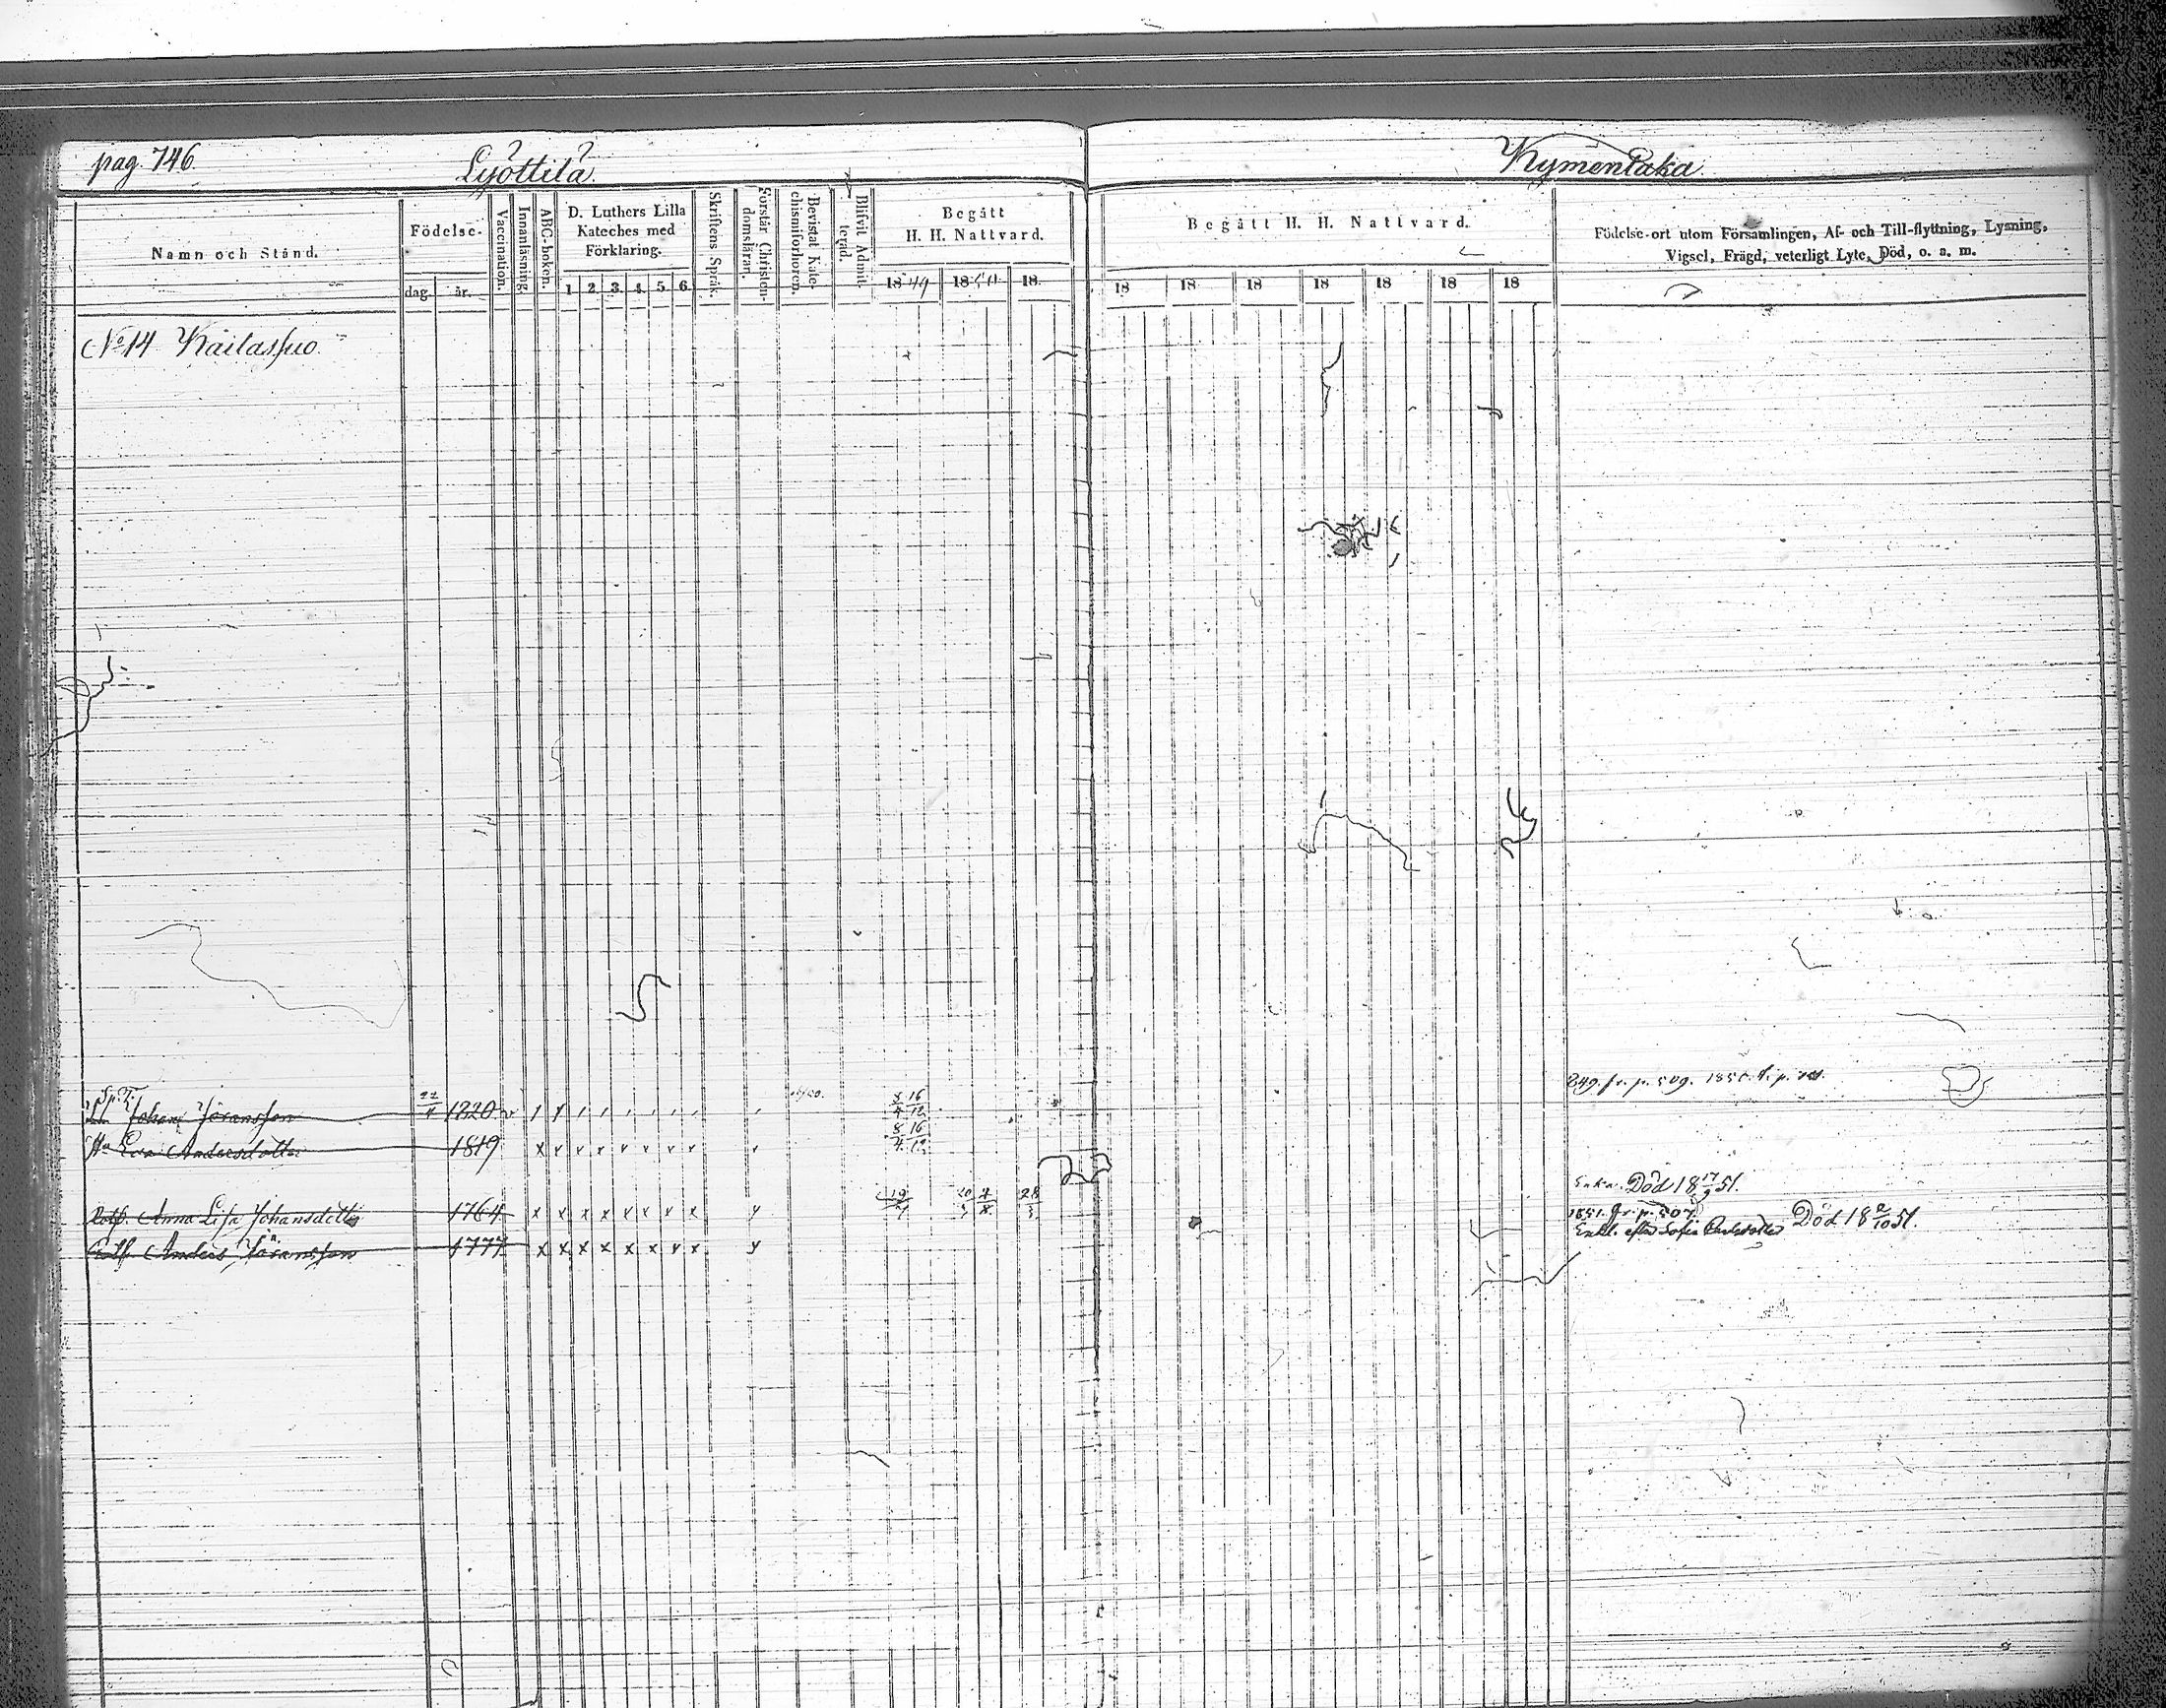 pag. 746.
Lyöttilä.
Kymentaka
Namn och Stånd.
Födelse-
dag.
år.
Vaccination.
Innanläsning.
ABC-boken.
D. Luthers Lilla
Kateches med
Förklaring.
1 2. 3. 4. 5. 6.
Skriftens Språk.
Förstår Christen-
domsläran.
Bevistat Kate-
chismiförhören.
Blifvit Admit-
terad.
Begått
H. H. Nattvard.
1849 1850 18
Begått H. H. Nattvard.
18 18 18 18 18 18 18
Födelse-ort utom Församlingen, Af- och Till-flyttning, Lysning,
Vigsel, Frägd, veterligt Lyte, Död, o. s. m.
No 14 Kailassuo.
Johan Jöransson 22/4 1820 v 8/4 16/12
849. fr. p. 509. 1850. t. p.
Hu Eva Andersdotter 1819 8/4 16/12
Anna Lisa Johansdotter 1764
Enka. Död 18 17/9 51.
Anders Jöransson 1777
1851. fr. p. 507.
Enkl. efter Sofia Död 18 2/10 51.